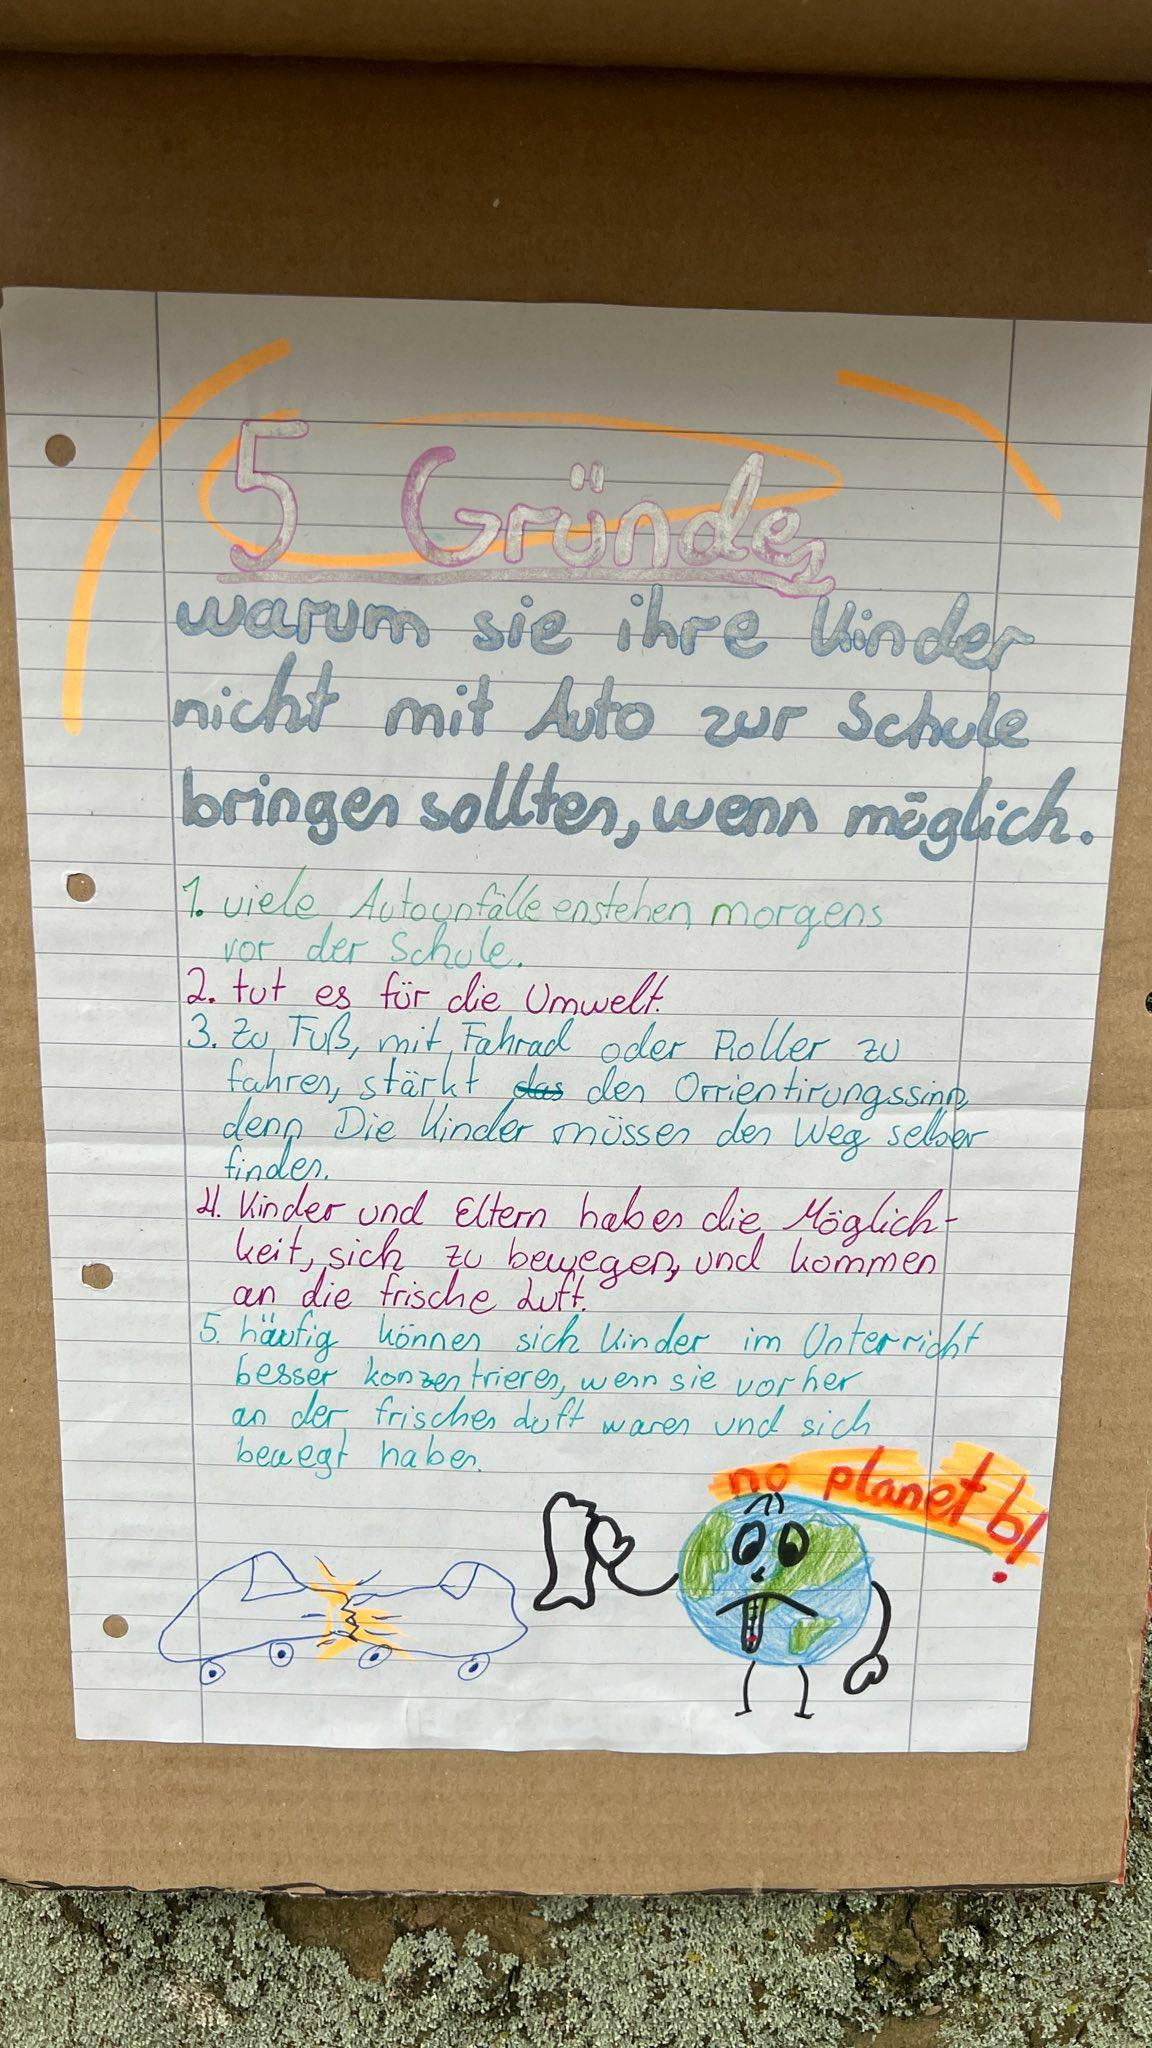 5 Gründe,
warum sie ihre Kinder
nicht mit Auto zur Schule
bringen sollten, wenn möglich.
1. viele Autounfälle enstehen morgens
vor der Schule.
2. tut es für die Umwelt.
3. Zu Fuß, mit Fahrad oder Roller zu
fahren, stärkt das den Orrientirungssinn,
denn Die Kinder müssen den Weg selber
finden.
4. Kinder und Eltern haben die Möglich-
keit, sich zu bewegen, und kommen
an die frische Luft.
5. häufig können sich Kinder im Unterricht
besser konzentrieren, wenn sie vorher
an der frischen Luft waren und sich
bewegt haben.
no planet b!